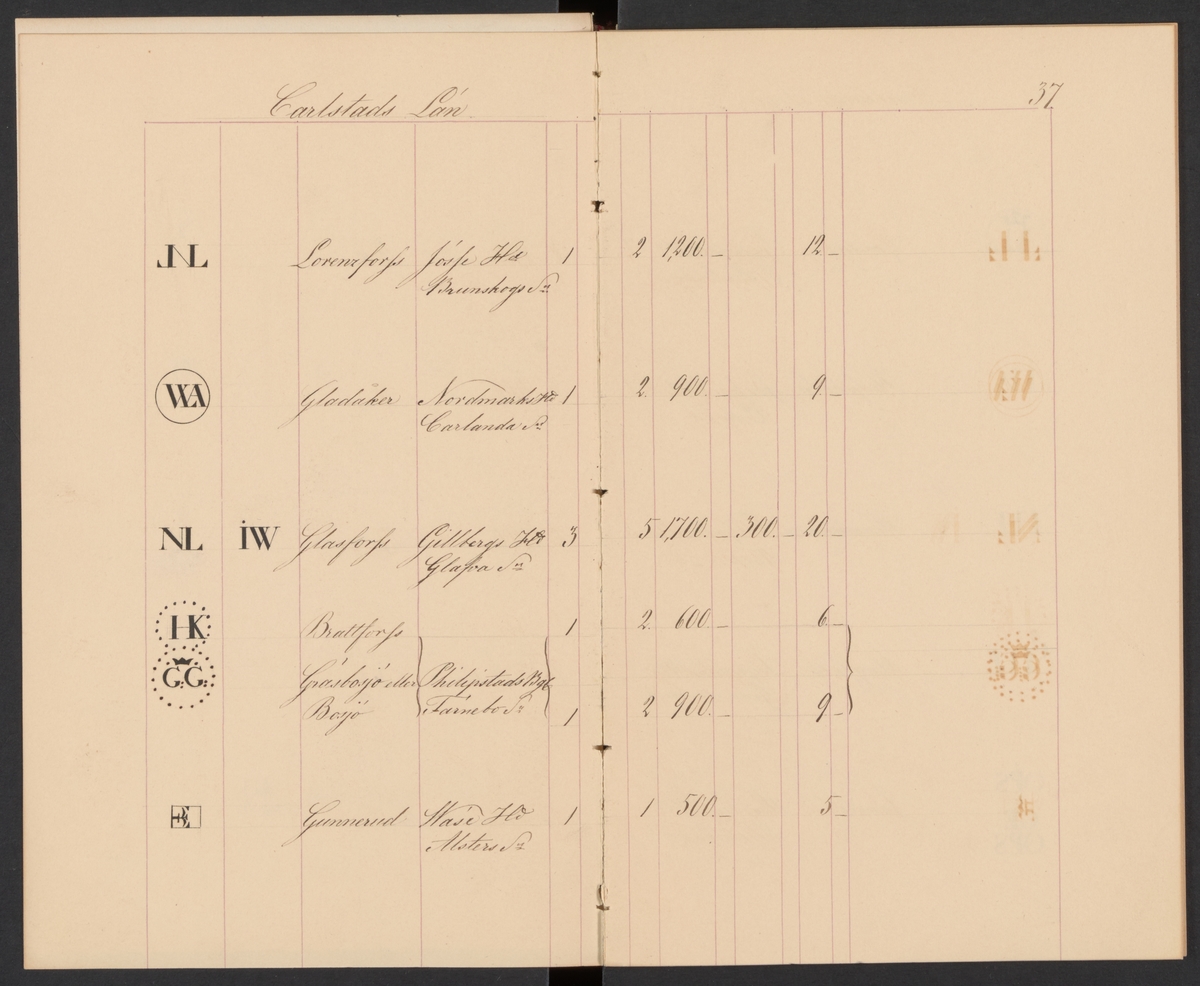 Carlstads Län
37.
JNL Lorenzforss Jösse Hd 1 2 1,200. _ 12. _
Brunskogs Sn
WA Gladåker Nordmarks Hd 1 2. 900. _ 9. _
Carlanda Sn
NL IW Glasforss Gillbergs Hd 3 5 1,700. _ 300. _ 20. _
Glafva Sn
HK Brattforss 1 2. 600. _ 6. _
G:G: Gräsbosjö eller Philipstads Bgl
Bosjö Färnebo Sn 1 2 900. _ 9. _
Gunnerud Wäse Hd 1 1 500. _ 5. _
Alsters Sn